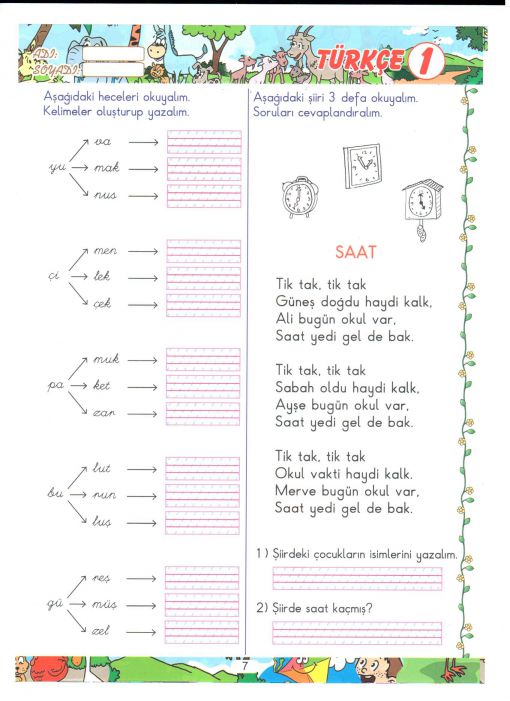 ADI:
SOYADI:
TÜRKÇE 1
Aşağıdaki heceleri okuyalım.
Kelimeler oluşturup yazalım.
va
yu mak
nus
men
çi lek
çek
muk
pa ket
zar
lut
bu run
luş
reş
gü müş
zel
Aşağıdaki şiiri 3 defa okuyalım.
Soruları cevaplandıralım.
SAAT
Tik tak, tik tak
Güneş doğdu haydi kalk,
Ali bugün okul var,
Saat yedi gel de bak.
Tik tak, tik tak
Sabah oldu haydi kalk,
Ayşe bugün okul var,
Saat yedi gel de bak.
Tik tak, tik tak
Okul vakti haydi kalk.
Merve bugün okul var,
Saat yedi gel de bak.
1) Şiirdeki çocukların isimlerini yazalım.
2) Şiirde saat kaçmış?
7